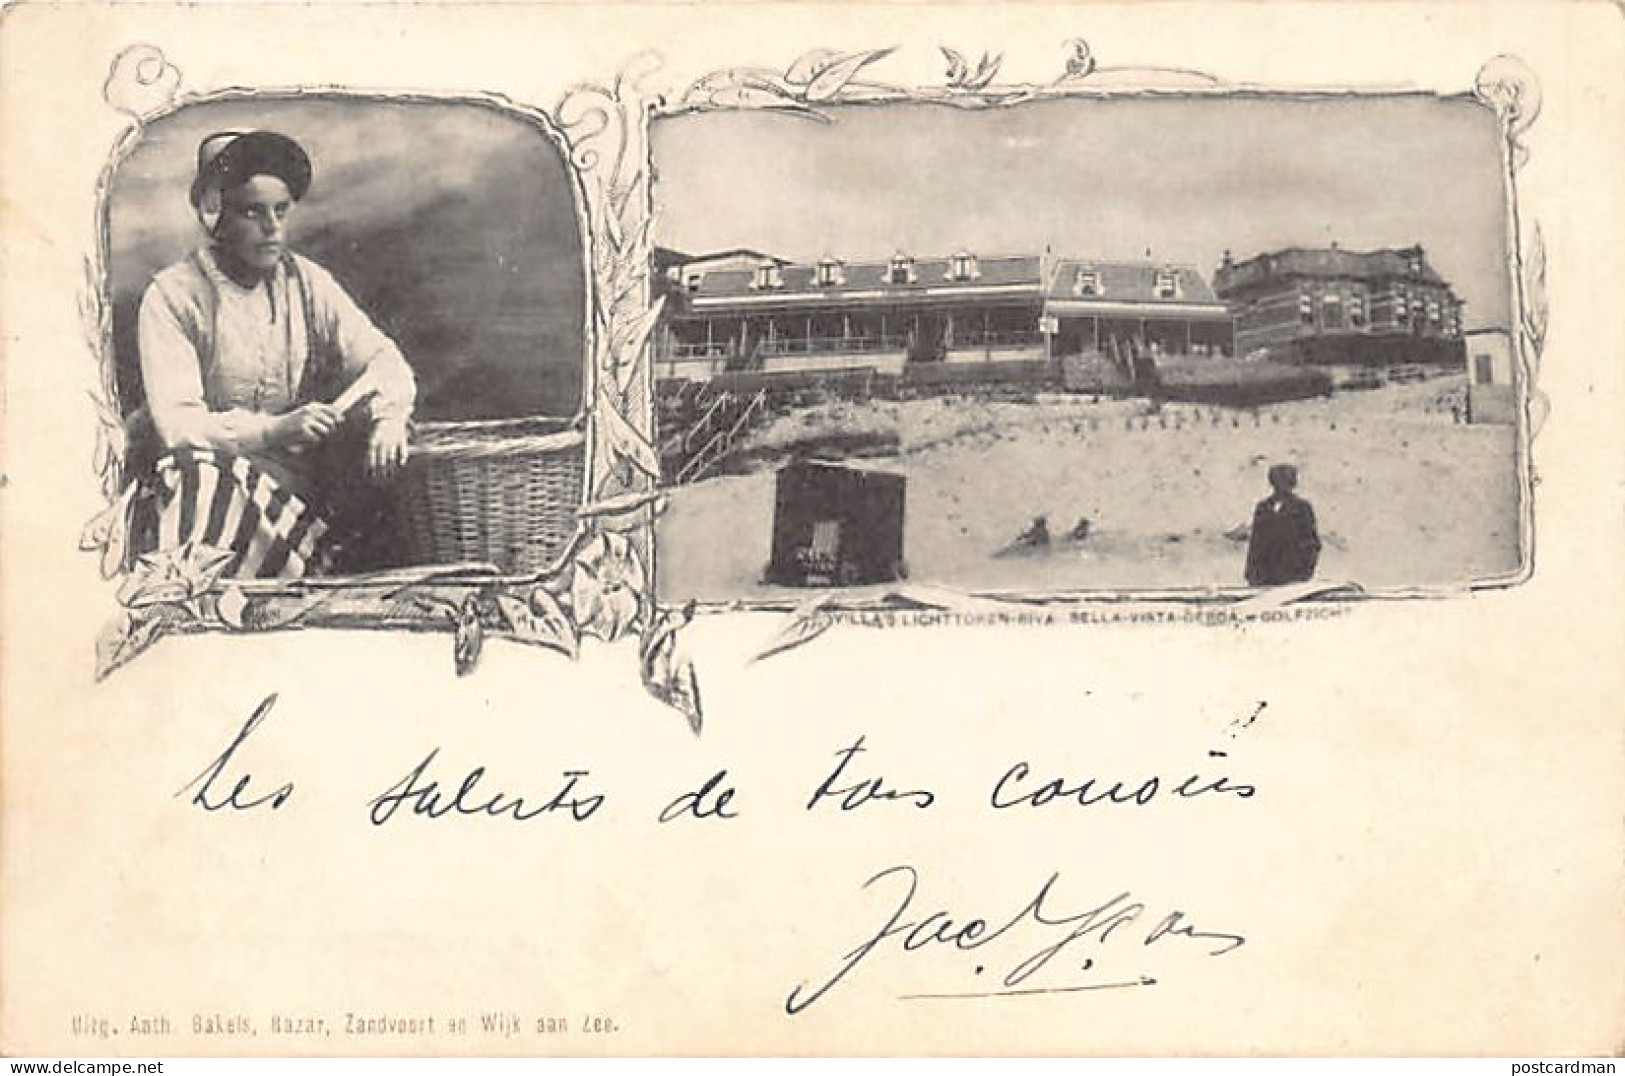 VILLA'S LICHTTOREN-RIVA. BELLA-VISTA-GERDA, GOLFZICHT
Les saluts de ton cousin
Jac.
Uitg. Anth. Bakels, Bazar, Zandvoort en Wijk aan Zee.
postcardman